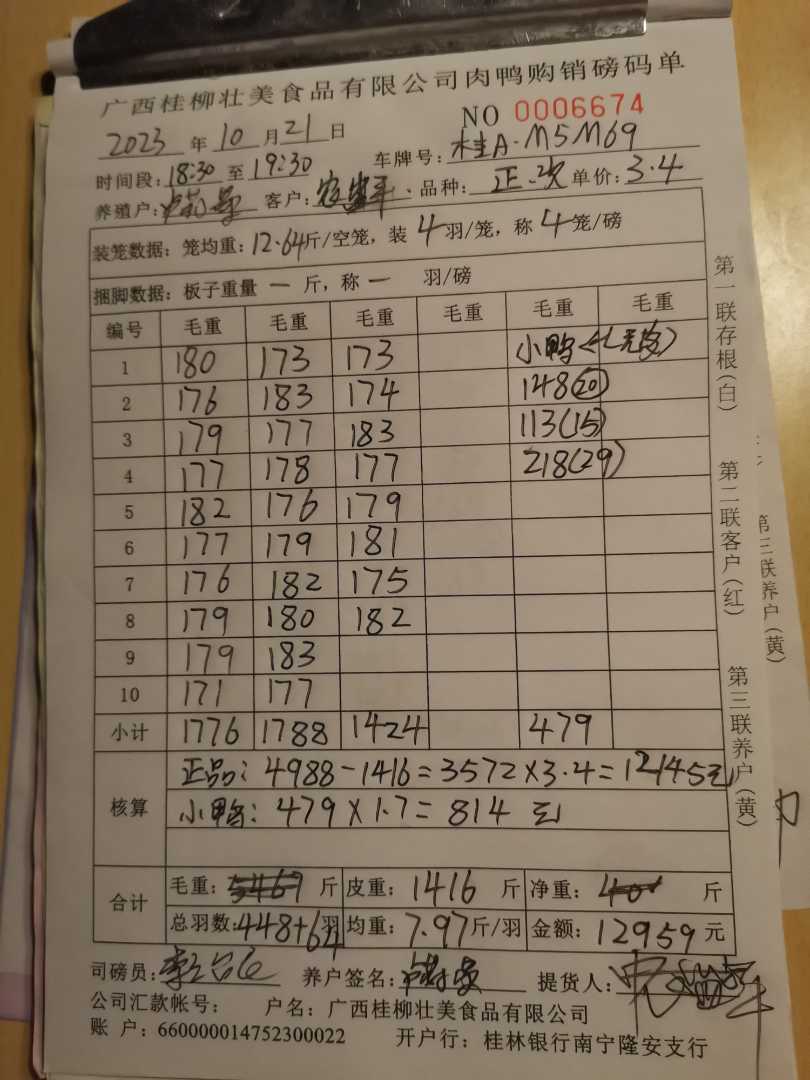 广西桂柳壮美食品有限公司肉鸭购销磅码单
NO 0006674
2023 年 10 月 21 日
时间段: 18:30 至 19:30 车牌号: 桂A·M5M69
养殖户: 客户: 品种: 正次 单价: 3.4
装笼数据: 笼均重: 12.64斤/空笼, 装 4 羽/笼, 称 4 笼/磅
捆脚数据: 板子重量 一 斤, 称 一 羽/磅
编号 毛重 毛重 毛重 毛重 毛重 毛重
1 180 173 173 小鸭
2 176 183 174 148(20)
3 179 177 183 113(15)
4 177 178 177 218(29)
5 182 176 179
6 177 179 181
7 176 182 175
8 179 180 182
9 179 183
10 171 177
小计 1776 1788 1424 479
核算 正品: 4988-1416=3572×3.4=12145元
小鸭: 479×1.7=814元
合计 毛重: 5467 斤 皮重: 1416 斤 净重: 斤
总羽数: 448+64羽 均重: 7.97斤/羽 金额: 12959 元
司磅员: 养户签名: 提货人:
公司汇款帐号: 户名: 广西桂柳壮美食品有限公司
账 户: 660000014752300022 开户行: 桂林银行南宁隆安支行
第一联存根(白) 第二联客户(红) 第三联养户(黄)
第三联养户(黄)